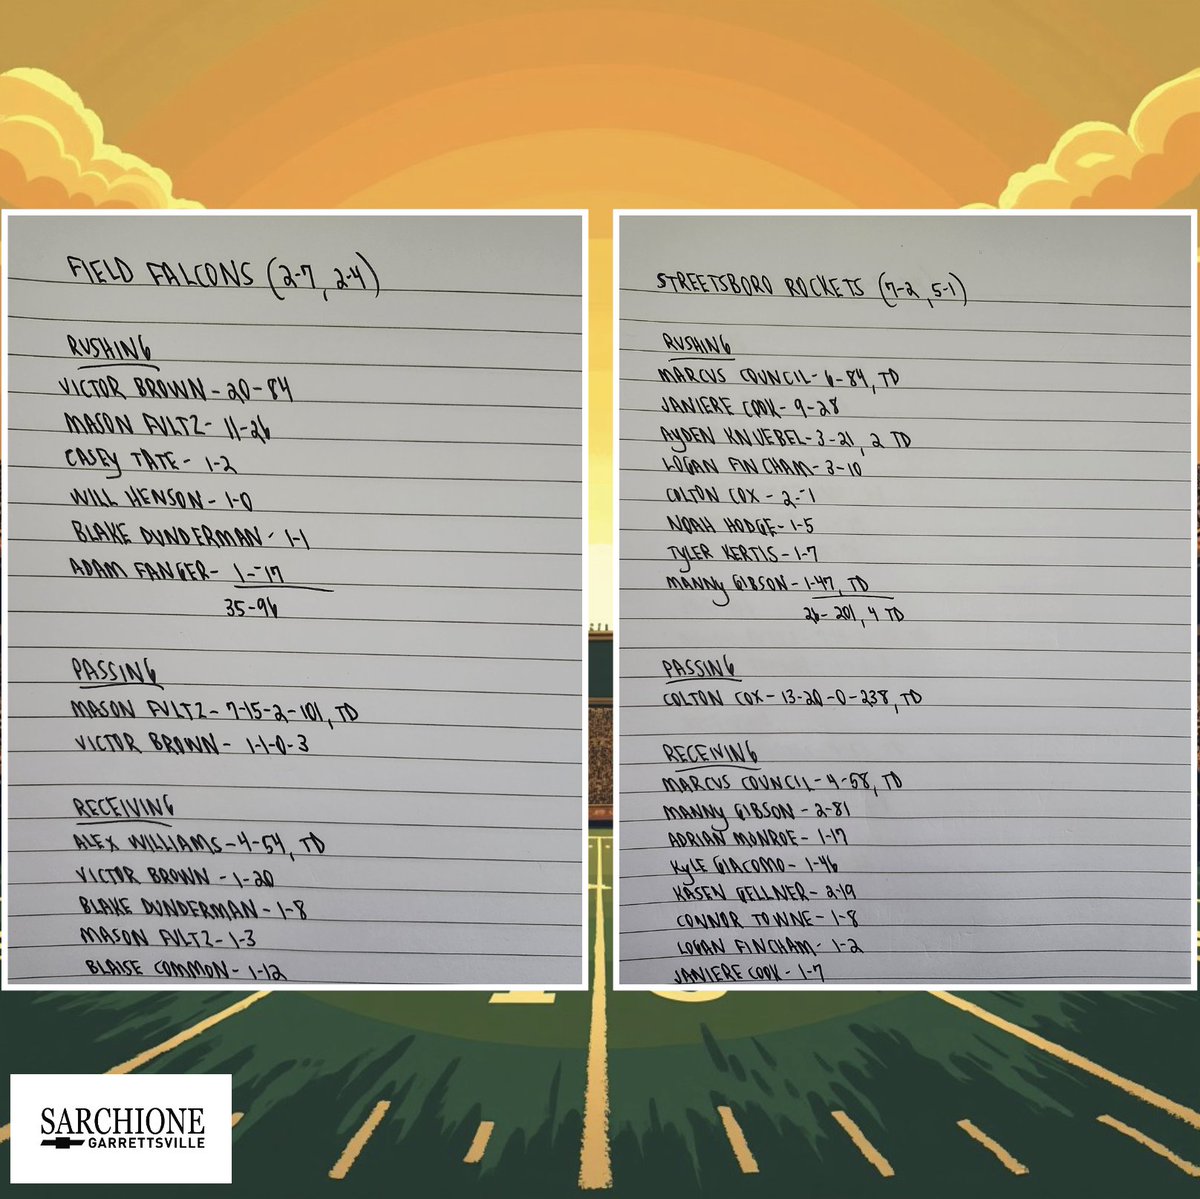 FIELD FALCONS (2-7, 2-4)
RUSHING
VICTOR BROWN - 20-84
MASON FULTZ - 11-26
CASEY TATE - 1-2
WILL HENSON - 1-0
BLAKE DUNDERMAN - 1-1
ADAM FANGER - 1--17
35-96
PASSING
MASON FULTZ - 7-15-2-101, TD
VICTOR BROWN - 1-1-0-3
RECEIVING
ALEX WILLIAMS - 4-54, TD
VICTOR BROWN - 1-20
BLAKE DUNDERMAN - 1-8
MASON FULTZ - 1-3
BLAISE COMMON - 1-12
STREETSBORO ROCKETS (7-2, 5-1)
RUSHING
MARCUS COUNCIL - 6-84, TD
JANIERE COOK - 9-28
AYDEN KNUEBEL - 3-21, 2 TD
LOGAN FINCHAM - 3-10
COLTON COX - 2--1
NOAH HODGE - 1-5
TYLER KERTIS - 1-7
MANNY GIBSON - 1-47, TD
26-201, 4 TD
PASSING
COLTON COX - 13-20-0-238, TD
RECEIVING
MARCUS COUNCIL - 4-58, TD
MANNY GIBSON - 2-81
ADRIAN MONROE - 1-17
KYLE GIACOMO - 1-46
KASEN GELLNER - 2-19
CONNOR TOWNE - 1-8
LOGAN FINCHAM - 1-2
JANIERE COOK - 1-7
SARCHIONE
GARRETTSVILLE